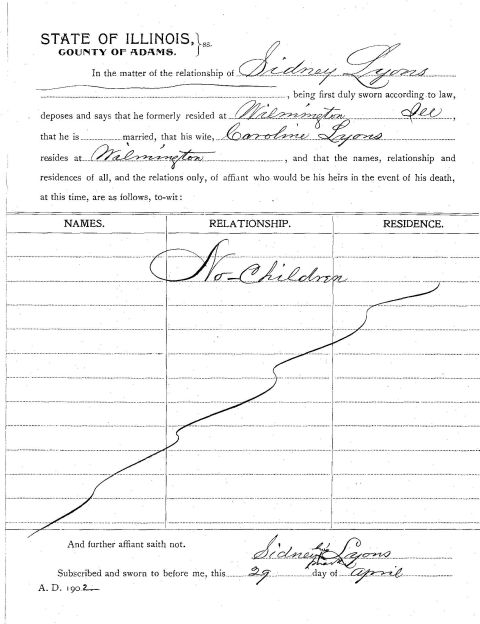 STATE OF ILLINOIS, } ss.
COUNTY OF ADAMS.
In the matter of the relationship of Sidney Lyons
, being first duly sworn according to law,
deposes and says that he formerly resided at Wilmington Ill,
that he is married, that his wife, Caroline Lyons
resides at Wilmington, and that the names, relationship and
residences of all, and the relations only, of affiant who would be his heirs in the event of his death,
at this time, are as follows, to-wit:
NAMES. RELATIONSHIP. RESIDENCE.
No Children
And further affiant saith not.
Sidney his mark Lyons
Subscribed and sworn to before me, this 29 day of April
A. D. 1902